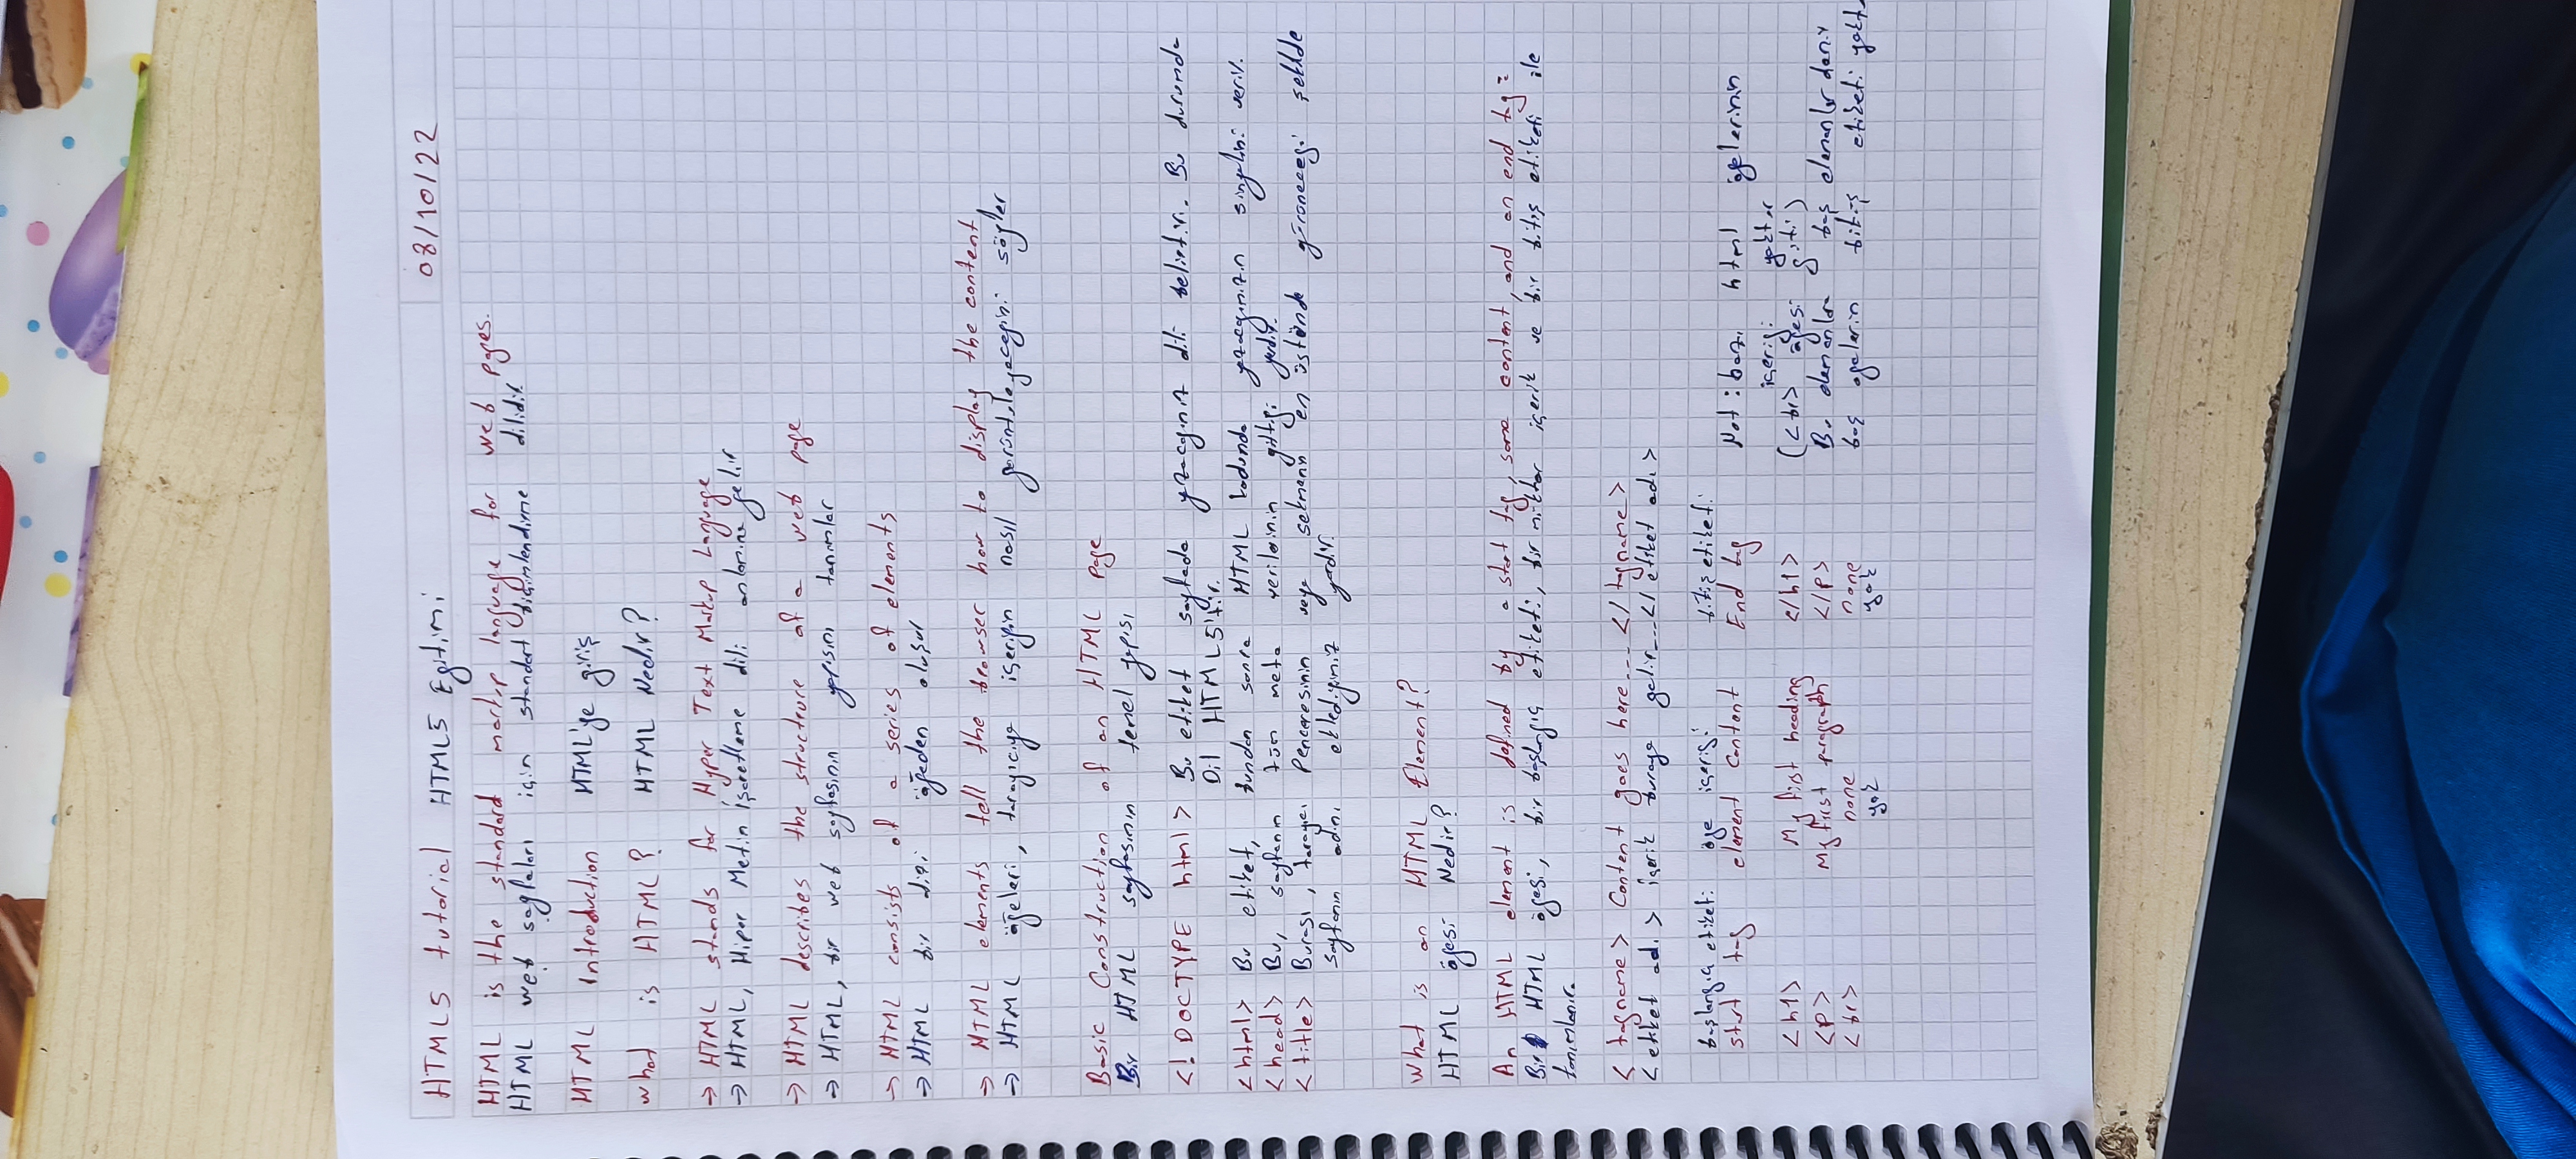 HTML5 tutorial HTML5 Egitimi
08/10/22
HTML is the standard markup language for web pages.
HTML web sayfaları için standart biçimlendirme dilidir.
HTML Introduction HTML'ye giriş
what is HTML? HTML Nedir?
→ HTML stands for Hyper Text Markup Language
→ HTML, Hiper Metin işaretleme dili anlamına gelir
→ HTML describes the structeure of a web page
→ HTML, bir web sayfasının yapısını tanımlar
→ HTML consists of a series of elements
→ HTML bir dizi öğeden oluşur
→ HTML elements tell the browser how to display the content
→ HTML öğeleri, tarayıcıya içeriğin nasıl görüntüleyecegini söyler
Basic Construction of an HTML page
Bir HTML sayfasının temel yapısı
<! DOCTYPE html> Bu etiket sayfada yazacgınız dili belirtir. Bu durumda
Dil HTML5'tir.
<html> Bu etiket, bundan sonra HTML kodunda yazacgınızın sinyalini verir.
<head> Bu, sayfanın tüm meta verilerinin gittiği yerdir.
<title> Burası, tarayıcı Penceresinin veya sekmenin en üstünde görünecegi şekilde
sayfanın adını eklediğimiz yerdir.
What is an HTML Element?
HTML öğesi Nedir?
An HTML element is defined by a start tag, some content, and an end tag:
Bir HTML öğesi, bir başlangıç etiketi, bir miktar içerik ve bir bitiş etiketi ile
tanımlanır.
< tagname > Content goes here... </ tagname >
<etiket adı > içerik buraya gelir...</ etiket adı >
başlangıç etiketi öğe içeriği bitiş etiketi
start tag element Content End tag Not: bazı html ögelerinin
içeriği yoktur
<h1> My first heading </h1> (<br> öğesi gibi)
<P> My first paragraph </P> Bu elemanlara boş elemanlar denir
<br> none none boş ogelerin bitiş etiketi
yok yok